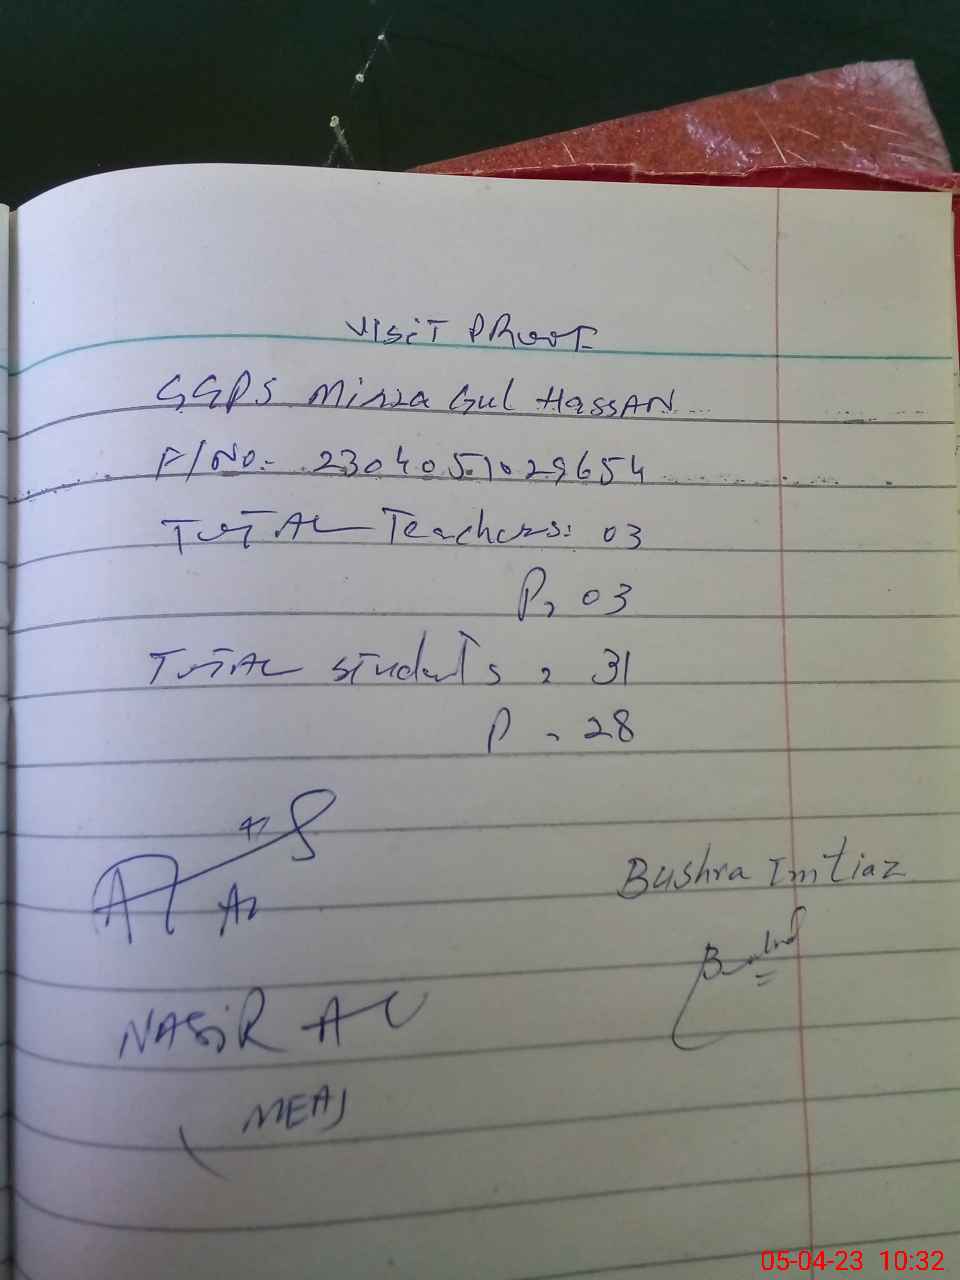 Visit Proof
GGPS Mirza Gul Hassan
F/No:- 2304051029654
Total Teachers: 03
P, 03
Total students = 31
P - 28
Bushra Imtiaz
NASiR Ali
(MEA)
05-04-23 10:32